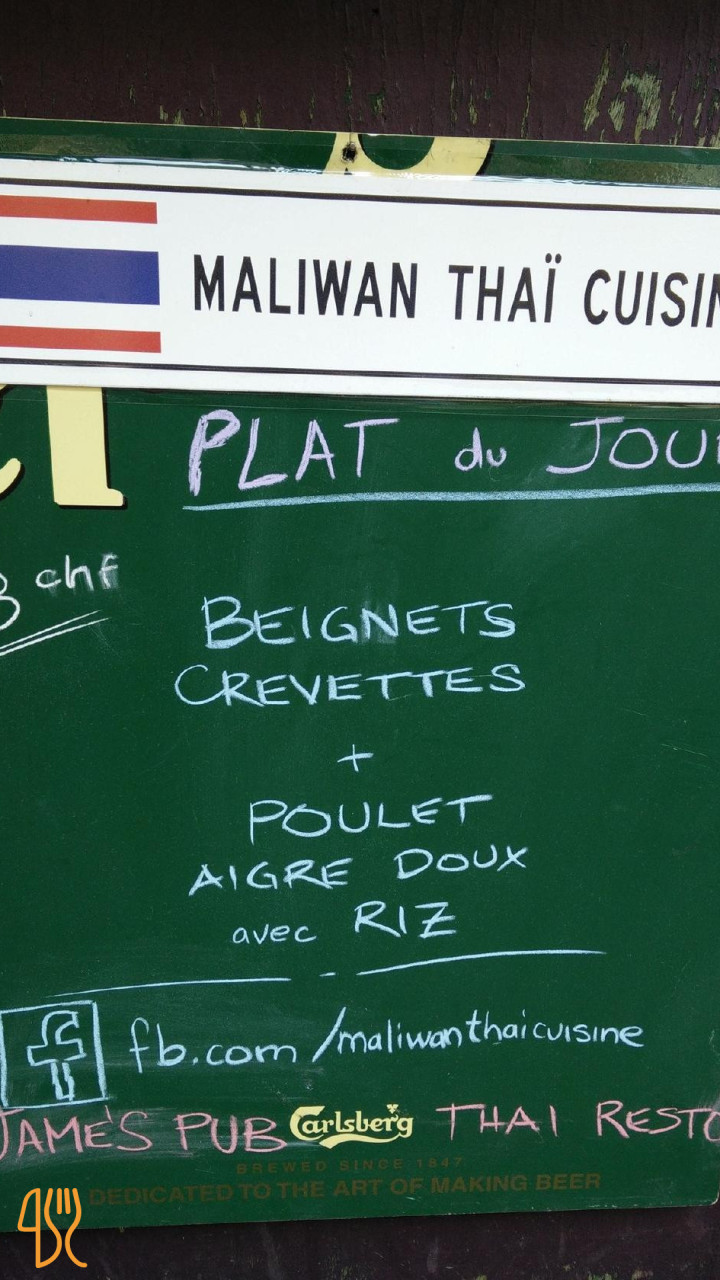 MALIWAN THAÏ CUISIN
PLAT du JOU
chf
BEIGNETS
CREVETTES
+
POULET
AIGRE DOUX
avec RIZ
f fb.com/maliwanthaicuisine
JAME'S PUB Carlsberg THAI RESTO
BREWED SINCE 1847
DEDICATED TO THE ART OF MAKING BEER